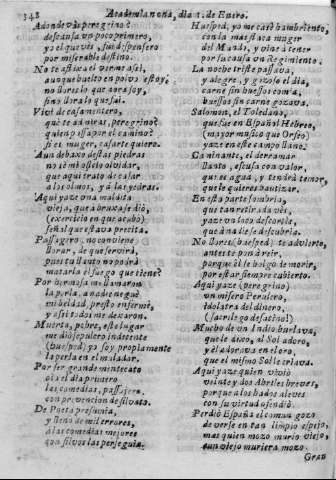 348
Academia nona, dia 1. de Enero.
Adonde vàs peregrino?
descansa un poco primero,
y el que vès, fue despensero
por miserable destino.
No te assista el verme assi,
aunque buelto en polvo estoy;
no llores lo que aora soy,
sino llora lo que fui.
Vivi de casamentero,
què te admiras, peregrino?
quien passa por el camino?
si es muger, casarte quiero.
Aun debaxo destas piedras
no se me ha olvidar,
que aqui trato de casar
a los olmos, y à las yedras.
Aqui yaze una maldita
vieja, que a bruxa se diò,
(exercicio en que acabò)
señal que estava precita.
Passagero, no conviene
llorar, de que servirà,
pues tu llanto no podrà
matarla el fuego que tiene?
Por hermosa me llamaron
la perla, a nadie neguè
mi beldad, presto enfermè,
y assi todos me dexaron.
Muerta, pobre, este lugar
me diò sepulcro indecente
(huesped) yo soy propiamente
la perla en el muladar.
Por ser grande mentecato
oìa el dia primero
las comedias, passagero,
con prevencion de silvato.
De Poeta presumia,
y lleno de mil errores,
a las comedias mejores
con silvos las perseguia.
Huesped, yo me casè hambriento,
con la mas flaca muger
del Mundo, y vine à tener
por su causa un Regimiento.
La noche triste passava,
y alegre, y gozoso el dia,
carne sin huessos comia,
huessos sin carne gozava.
Salomon, el Toledano,
que fue en España Hebreo,
(mayor musico que Orfeo)
yaze en este campo llano.
Caminante, el derramar
llanto, escusa con valor,
que es agua, y tendrà temor,
que le quieres bautizar.
En esta parte sombria,
que tan retirada vès,
yaze un loco descortès,
que à nadie se descubria.
No llores (huesped) te advierto,
antes te pon à reir,
porque èl se holgò de morir,
por estar siempre cubierto.
Aqui yaze (peregrino)
un misero Peralero,
idolatra del dinero,
(sacrilego desatino!)
Mucho de un Indio burlava,
que le dixo, al Sol adoro,
y èl adorava en el oro,
que el mismo Sol le criava.
Aqui yaze quien viviò
veinte y dos Abriles breves,
porque a los hados aleves
con su virtud ofendiò.
Perdiò España el comun gozo
de verse en tan limpio espejo,
mas quien mozo murio viejo,
aun viejo muriera mozo.
Gran